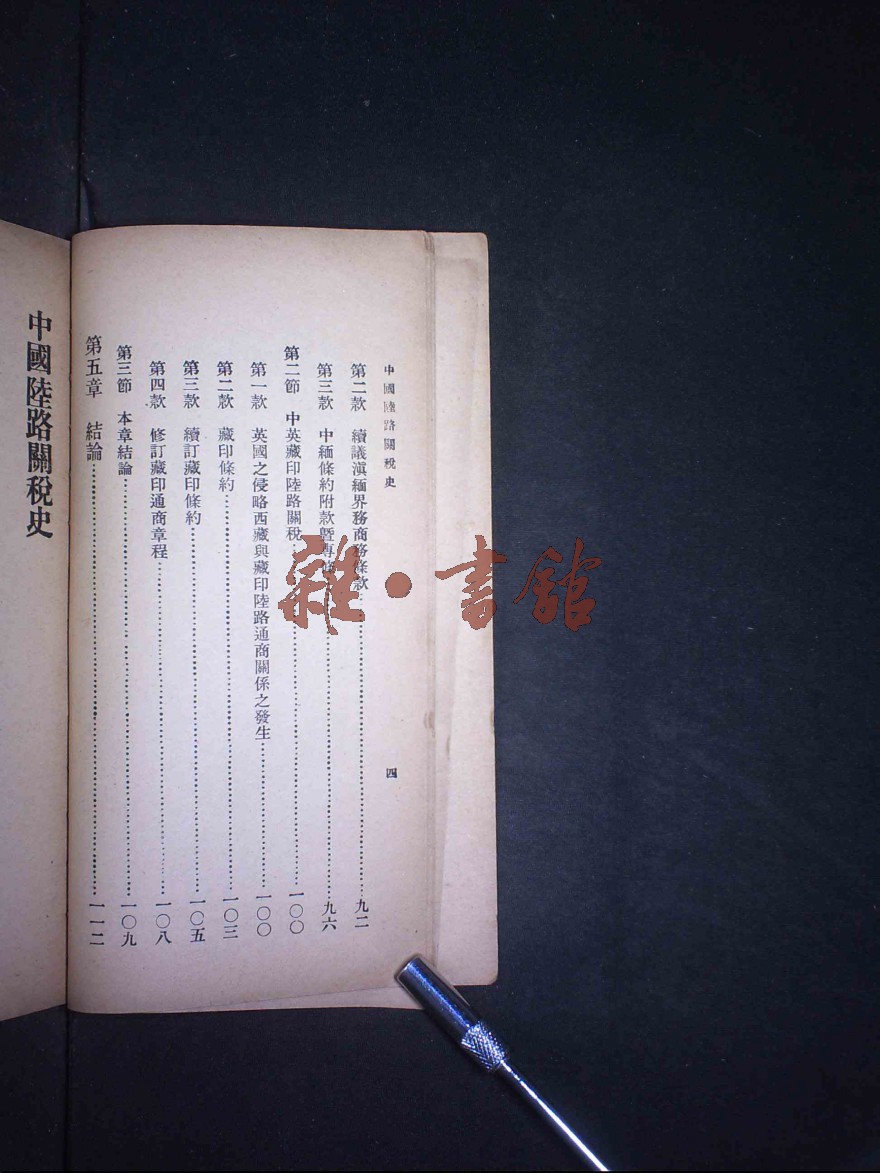 中國陸路關稅史
四
第二款 續議滇緬界務商務條款……九二
第三款 中緬條約附款暨專條……九六
第二節 中英藏印陸路關稅……一〇〇
第一款 英國之侵略西藏與藏印陸路通商關係之發生……一〇〇
第二款 藏印條約……一〇三
第三款 續訂藏印條約……一〇五
第四款 修訂藏印通商章程……一〇八
第三節 本章結論……一〇九
第五章 結論……一一二
中國陸路關稅史
雜·書館